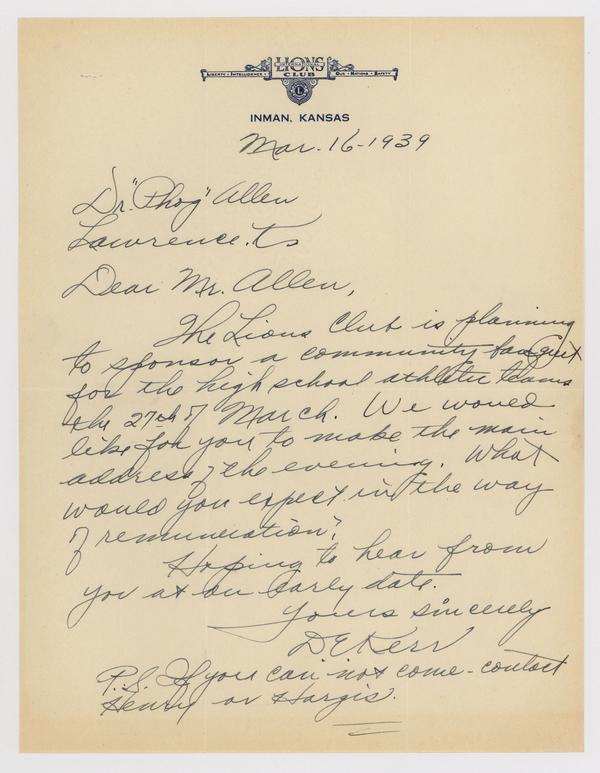 LIONS
INTERNATIONAL
CLUB
LIBERTY • INTELLIGENCE • OUR • NATIONS • SAFETY
L
INMAN, KANSAS
Mar. 16-1939
Dr. "Phog" Allen
Lawrence. Ks
Dear Mr. Allen,
The Lions Club is planning
to sponsor a community banquet
for the high school athletic teams
the 27th of March. We would
like for you to make the main
address of the evening. What
would you expect in the way
of remuneration?
Hoping to hear from
you at an early date.
Yours sincerely
D E Kerr
P.S. If you can not come - contact
Henry or Hargis.